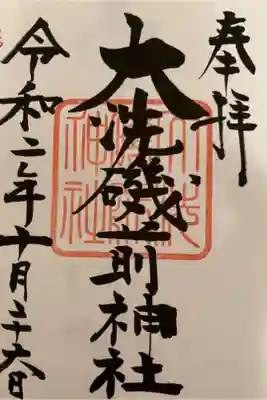 奉拝
大洗磯前神社
令和二年十月二十六日